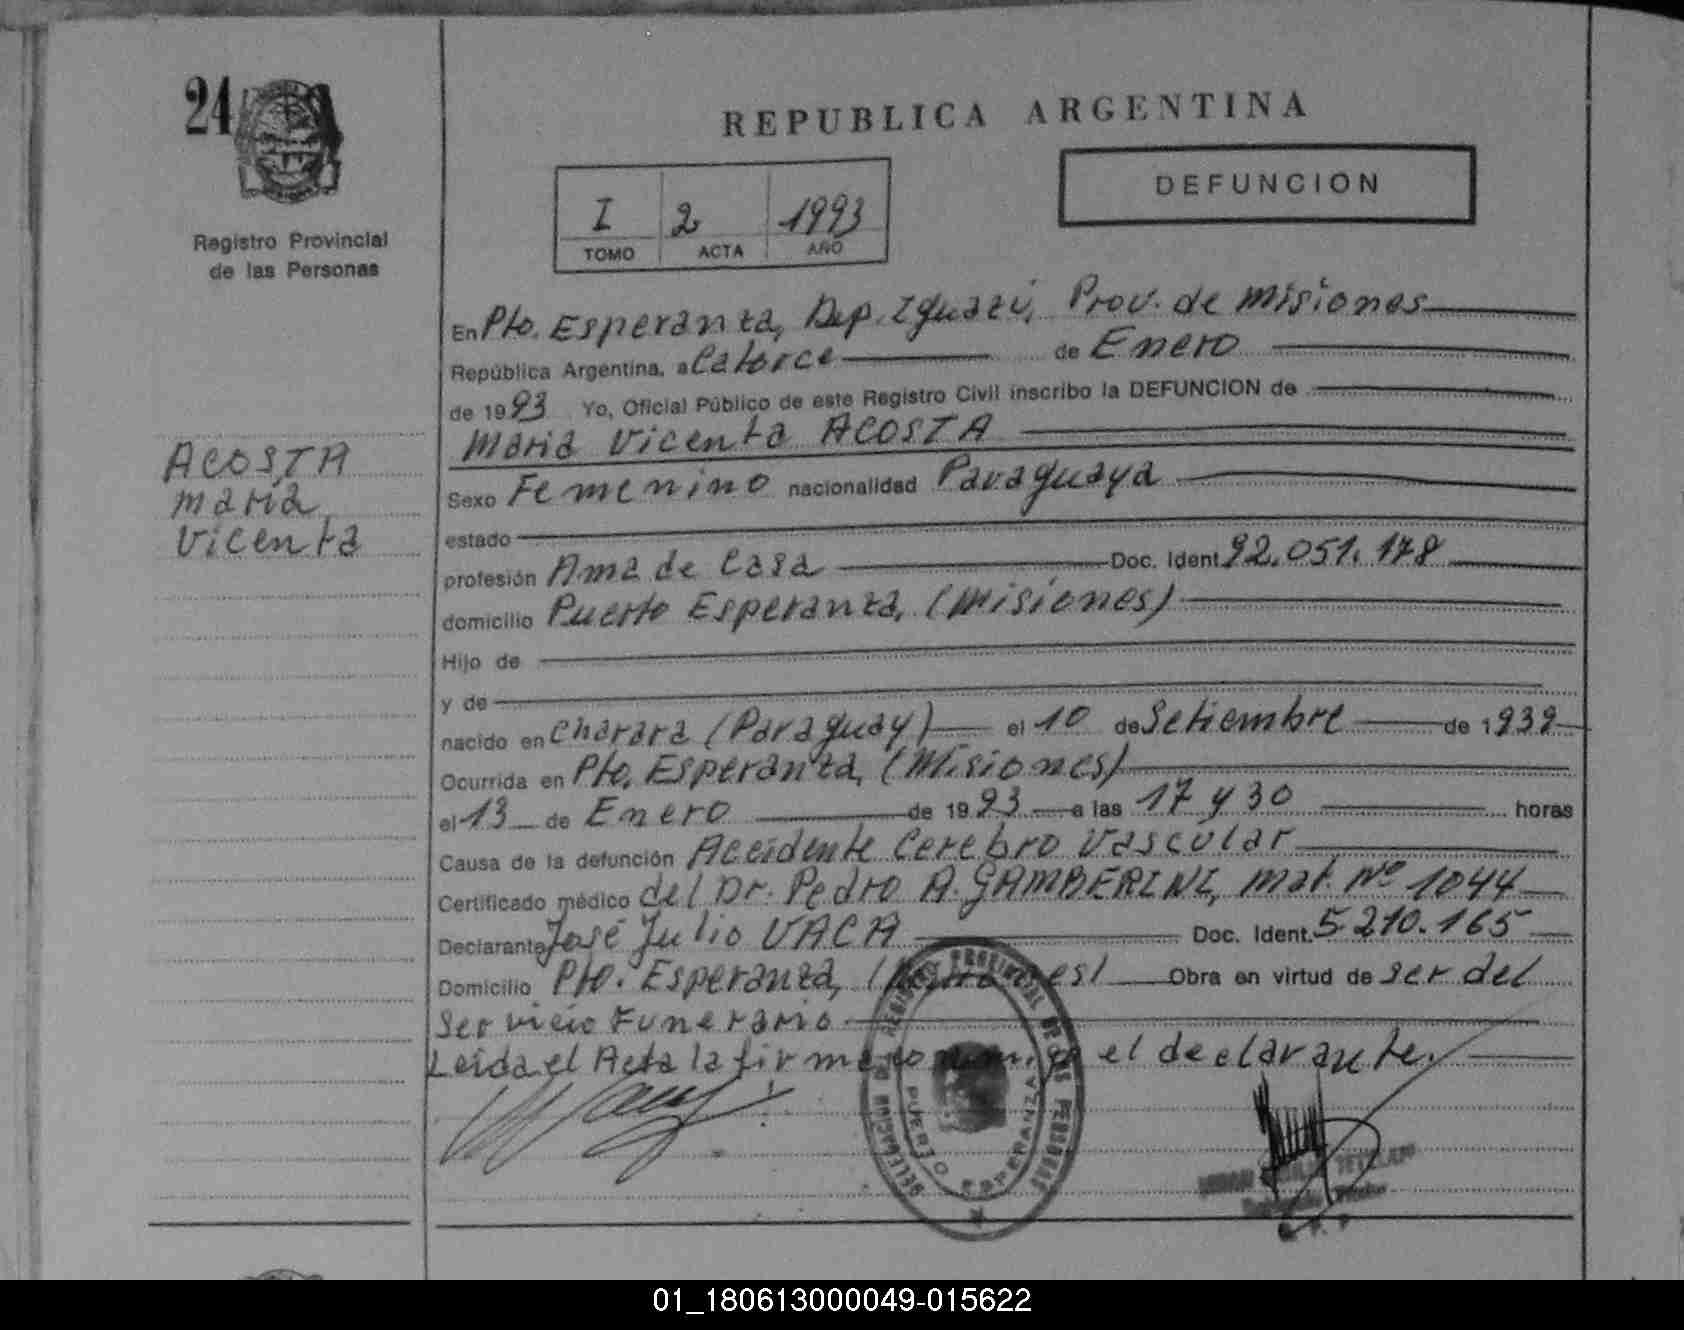 24
REPUBLICA ARGENTINA
DEFUNCION
I 2 1993
TOMO ACTA AÑO
Registro Provincial
de las Personas
ACOSTA
maria
Vicenta
En Pto. Esperanza, Dep. Iguazú, Prov. de Misiones
República Argentina, a Catorce de Enero
de 1993 Yo, Oficial Público de este Registro Civil inscribo la DEFUNCION de
Maria Vicenta ACOSTA
Sexo Femenino nacionalidad Paraguaya
estado
profesión Ama de Casa Doc. Ident. 92.051.178
domicilio Puerto Esperanza, (Misiones)
Hijo de
y de
nacido en Charara (Paraguay) el 10 de Setiembre de 1939
Ocurrida en Pto. Esperanza, (Misiones)
el 13 de Enero de 1993 a las 17 y 30 horas
Causa de la defunción Accidente Cerebro Vascular
Certificado médico del Dr. Pedro A. GAMBERINI, mat. Nº 1044
Declarante José Julio VACA Doc. Ident. 5.210.165
Domicilio Pto. Esperanza, (Misiones) Obra en virtud de ser del
Servicio Funerario
Leida el Acta la firma conmigo el declarante.
DELEGACION DEL REGISTRO PROVINCIAL DE LAS PERSONAS
PUERTO ESPERANZA
01_180613000049-015622